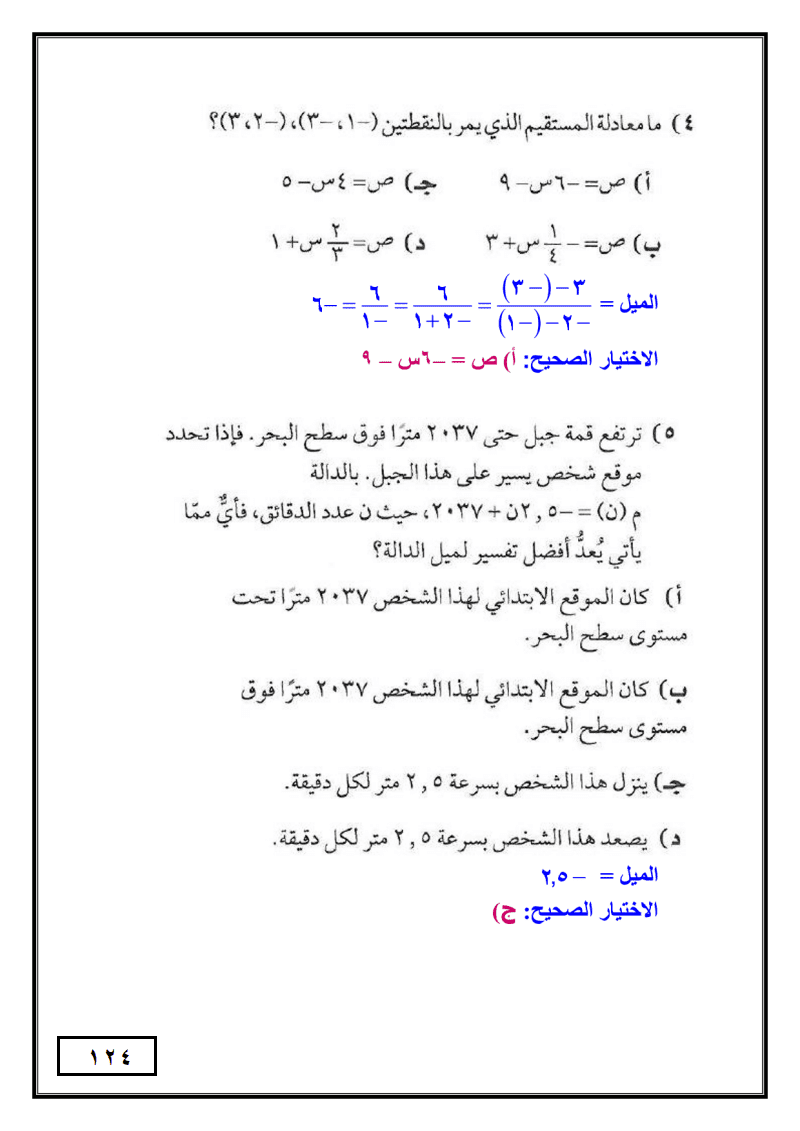 ٤) ما معادلة المستقيم الذي يمر بالنقطتين (-١، -٣)، (-٢، ٣)؟
أ) ص= -٦س- ٩ جـ) ص= ٤س- ٥
ب) ص= - ١/٤ س+ ٣ د) ص= ٢/٣ س+ ١
الميل = (٣-(-٣))/(-٢-(-١)) = ٦/(-٢+١) = ٦/-١ = -٦
الاختيار الصحيح: أ) ص = -٦س - ٩
٥) ترتفع قمة جبل حتى ٢٠٣٧ مترًا فوق سطح البحر. فإذا تحدد
موقع شخص يسير على هذا الجبل. بالدالة
م (ن) = -٢,٥ن + ٢٠٣٧، حيث ن عدد الدقائق، فأيٌّ ممّا
يأتي يُعدُّ أفضل تفسير لميل الدالة؟
أ) كان الموقع الابتدائي لهذا الشخص ٢٠٣٧ مترًا تحت
مستوى سطح البحر.
ب) كان الموقع الابتدائي لهذا الشخص ٢٠٣٧ مترًا فوق
مستوى سطح البحر.
جـ) ينزل هذا الشخص بسرعة ٢,٥ متر لكل دقيقة.
د) يصعد هذا الشخص بسرعة ٢,٥ متر لكل دقيقة.
الميل = - ٢,٥
الاختيار الصحيح: ج)
١٢٤